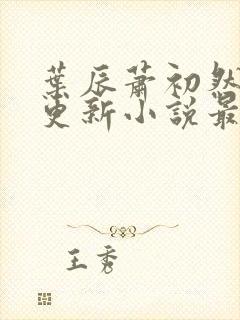 葉辰蕭初然
更新小說最
王秀